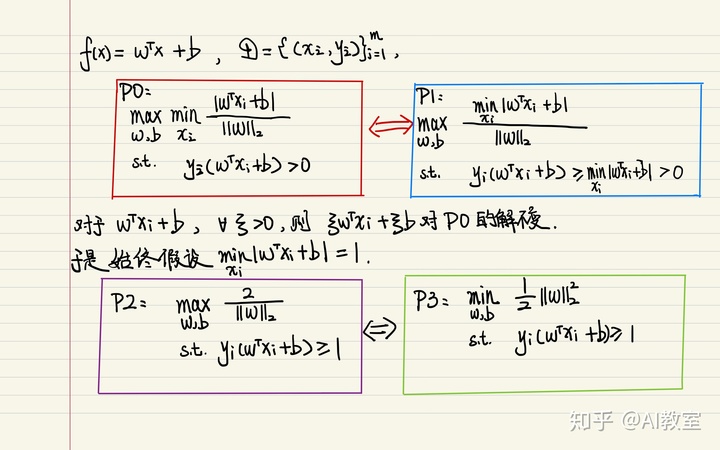 f(x) = wᵀx + b , D = {(xᵢ, yᵢ)}ᵢ₌₁ᵐ ,
P0:
max_{w,b} min_{xᵢ} |wᵀxᵢ+b| / ||w||₂
s.t. yᵢ(wᵀxᵢ+b) > 0
⇔
P1:
max_{w,b} min_{xᵢ}|wᵀxᵢ+b| / ||w||₂
s.t. yᵢ(wᵀxᵢ+b) ≥ min_{xᵢ}|wᵀxᵢ+b| > 0
对于 wᵀxᵢ+b , ∀ ξ>0 , 则 ξwᵀxᵢ+ξb 对 P0 的解不变.
于是始终假设 min_{xᵢ}|wᵀxᵢ+b| = 1.
P2: max_{w,b} 2 / ||w||₂
s.t. yᵢ(wᵀxᵢ+b) ≥ 1
⇔
P3: min_{w,b} 1/2 ||w||₂²
s.t. yᵢ(wᵀxᵢ+b) ≥ 1
知乎 @AI教室